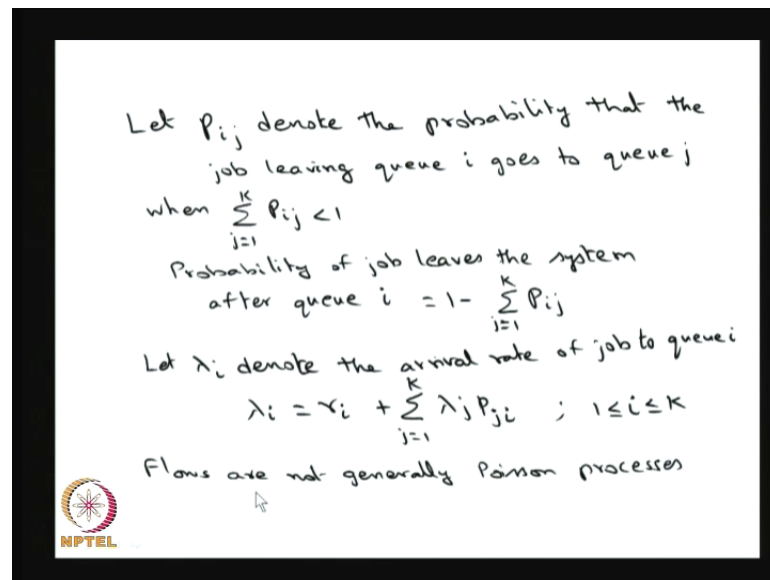 Let Pij denote the probability that the
job leaving queue i goes to queue j
when K∑j=1 Pij < 1
Probability of job leaves the system
after queue i = 1 - K∑j=1 Pij
Let λi denote the arrival rate of job to queue i
λi = ri + K∑j=1 λj Pji ; 1 ≤ i ≤ K
Flows are not generally Poisson processes
NPTEL